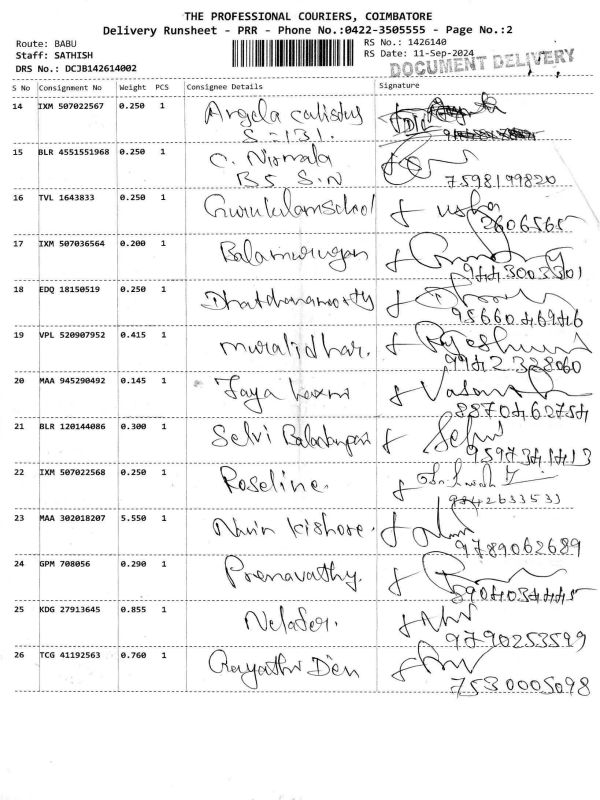 THE PROFESSIONAL COURIERS, COIMBATORE
Delivery Runsheet - PRR - Phone No.:0422-3505555 - Page No.:2
Route: BABU
RS No.: 1426140
Staff: SATHISH
RS Date: 11-Sep-2024
DRS No.: DCJB142614002
DOCUMENT DELIVERY
S No Consignment No Weight PCS Consignee Details Signature
14 IXM 507022567 0.250 1 Angela calistus
S-131.
15 BLR 4551551968 0.250 1 C. Nirmala
BS S.N 7598199820
16 TVL 1643833 0.250 1 Gurukulamschool usha
2606565
17 IXM 507036564 0.200 1 Balamurugan
9443003301
18 EDQ 18150519 0.250 1 Dhatchanamorty
9566046946
19 VPL 520907952 0.415 1 muralidhar. Rajeshwari
9942328060
20 MAA 945290492 0.145 1 Jaya laxmi
8870462754
21 BLR 120144086 0.300 1 Selvi Selvi
9597341413
22 IXM 507022568 0.250 1 Roseline.
9842633533
23 MAA 302018207 5.550 1 Navin kishore.
9789062689
24 GPM 708056 0.290 1 Premavathy.
8904034445
25 KDG 27913645 0.855 1 Nelofer.
9790253599
26 TCG 41192563 0.760 1 Gayathri Devi
7530005098